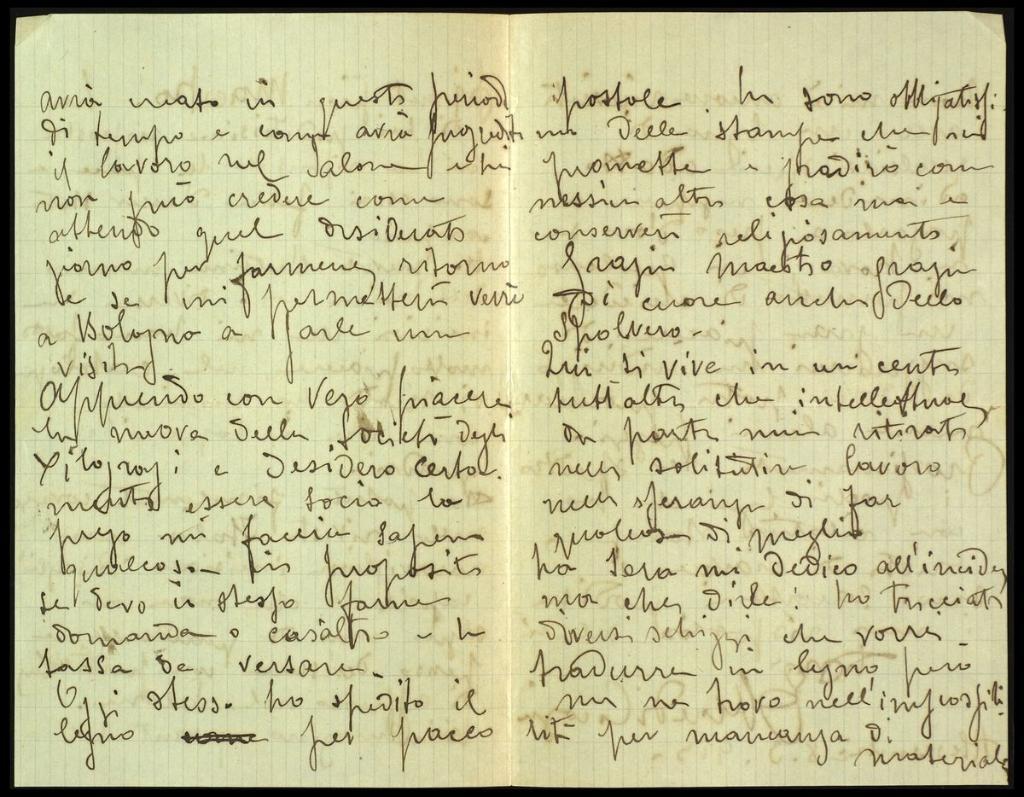 avrà creato in questo periodo
di tempo e come avrà progredito
il lavoro nel Salone e Lei
non può credere come
attendo quel desiderato
giorno per farmene ritorno
e se mi permetterà verrò
a Bologna a farle una
visita.
Apprendo con vero piacere
la nuova della Società degli
Xilografi e desidero certa-
mente essere socio la
prego mi faccia sapere
qualcosa in proposito
se devo io stesso farne
domanda o cos'altro e la
tassa da versare.
Oggi stesso ho spedito il
legno per pacco
postale. Le sono obbligatissi-
mo delle stampe che mi
promette e gradirò come
nessun altra cosa mai e
conserverò religiosamente.
Grazie Maestro grazie
di cuore anche dello
Spolvero.
Qui si vive in un centro
tutt'altro che intellettuale,
da parte mia ritirato
nella solitudine lavoro
nella speranza di far
qualcosa di meglio
La sera mi dedico all'incidere
ma che dirle! ho tracciati
diversi schizzi che vorrei
tradurre in legno però
me ne trovo nell'impossibi-
lità per mancanza di
materiale